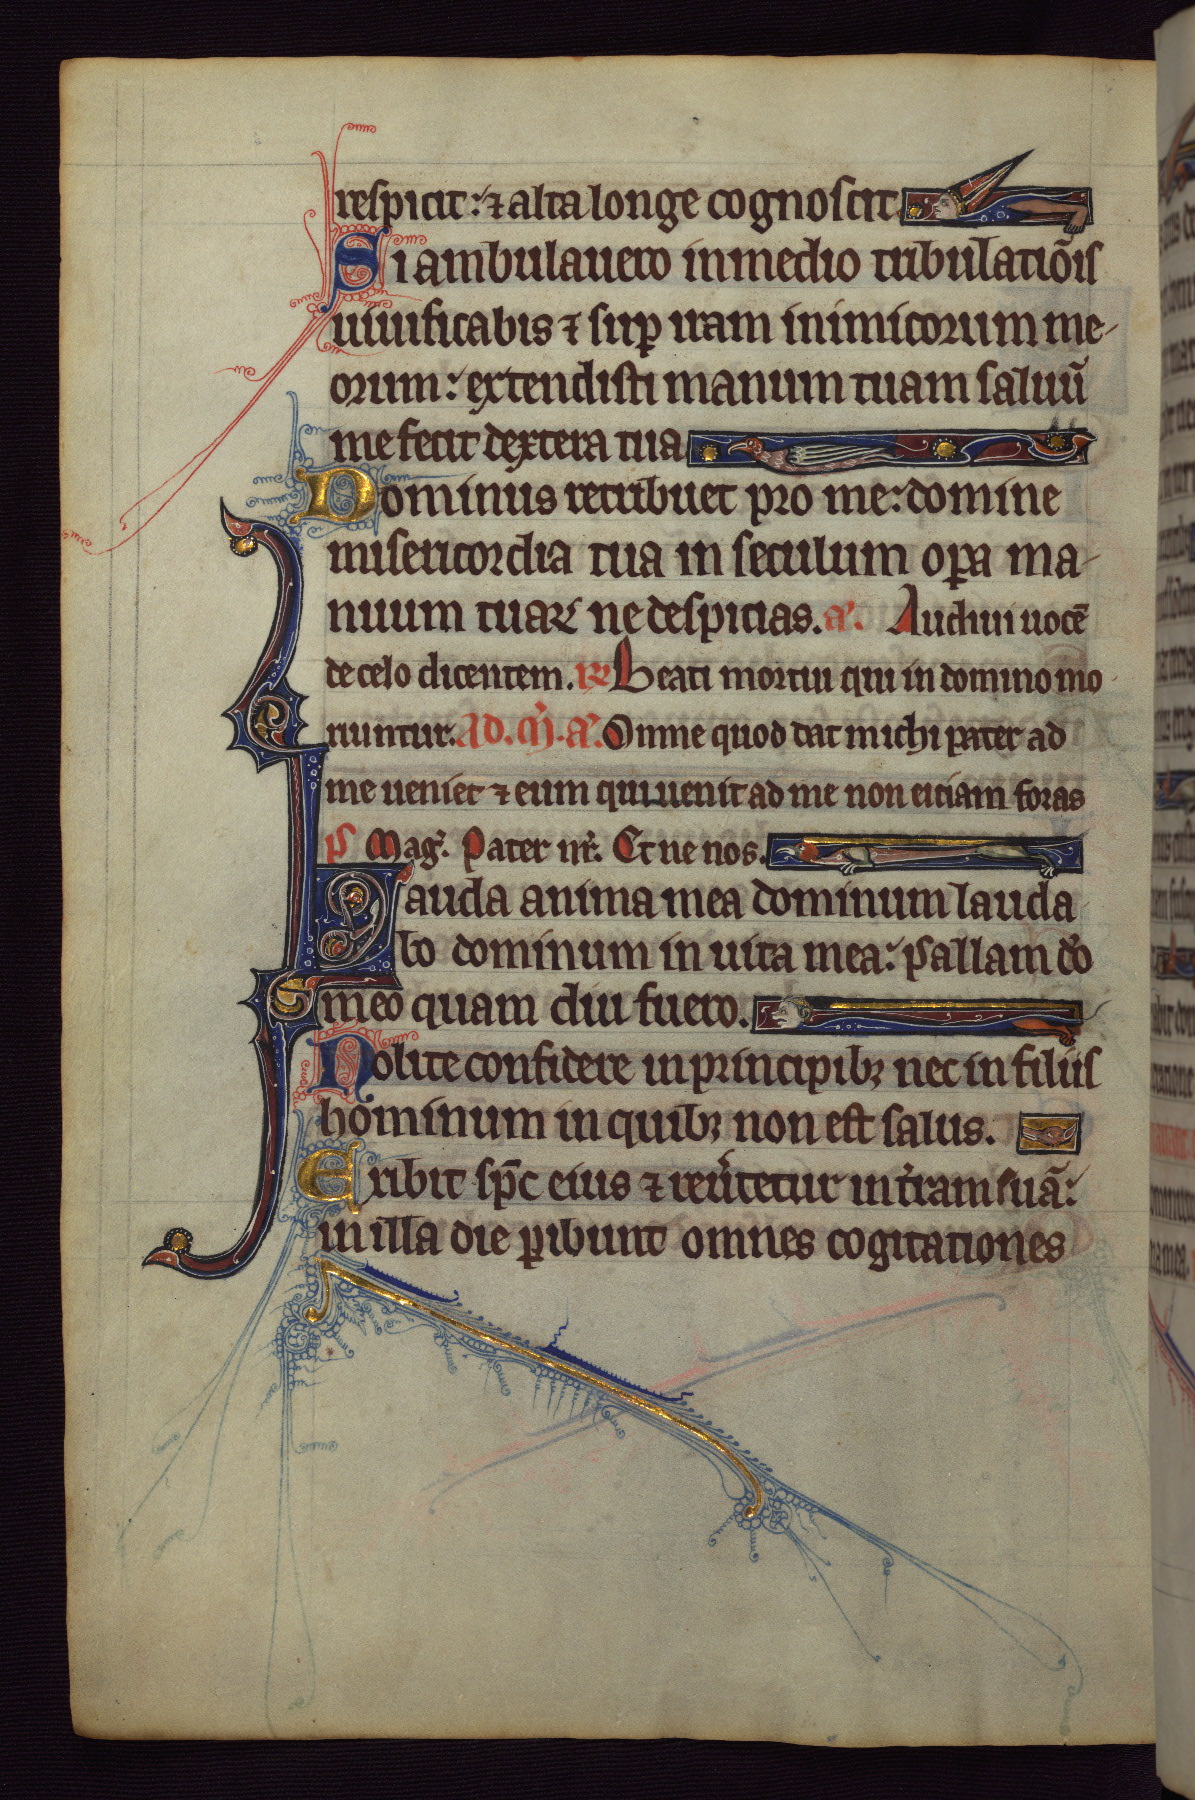 respicit: ⁊ alta longe cognoscit
Si ambulauero in medio tribulatiõis
uiuificabis ⁊ suꝑ iram inimicorum me-
orum: extendisti manum tuam saluũ
me fecit dextera tua
Dominus retribuet pro me: domine
misericordia tua in seculum oꝑa ma-
nuum tuaꝝ ne despicias. a'. Audiui uocẽ
de celo dicentem. ℟ Beati mortui qui in domino mo-
riuntur. Ad. m̃. a'. Omne quod dat michi pater ad
me ueniet ⁊ eum qui uenit ad me non eiciam foras
p̃s Mag'. Pater nr̃. Et ne nos.
Lauda anima mea dominum lauda
bo dominum in uita mea: psallam dõ
meo quam diu fuero.
Nolite confidere in principibꝫ nec in filiis
hominum in quibꝫ non est salus.
Exibit sp̃c eius ⁊ reu'tetur in t'ram suã:
in illa die ꝑibunt omnes cogitationes